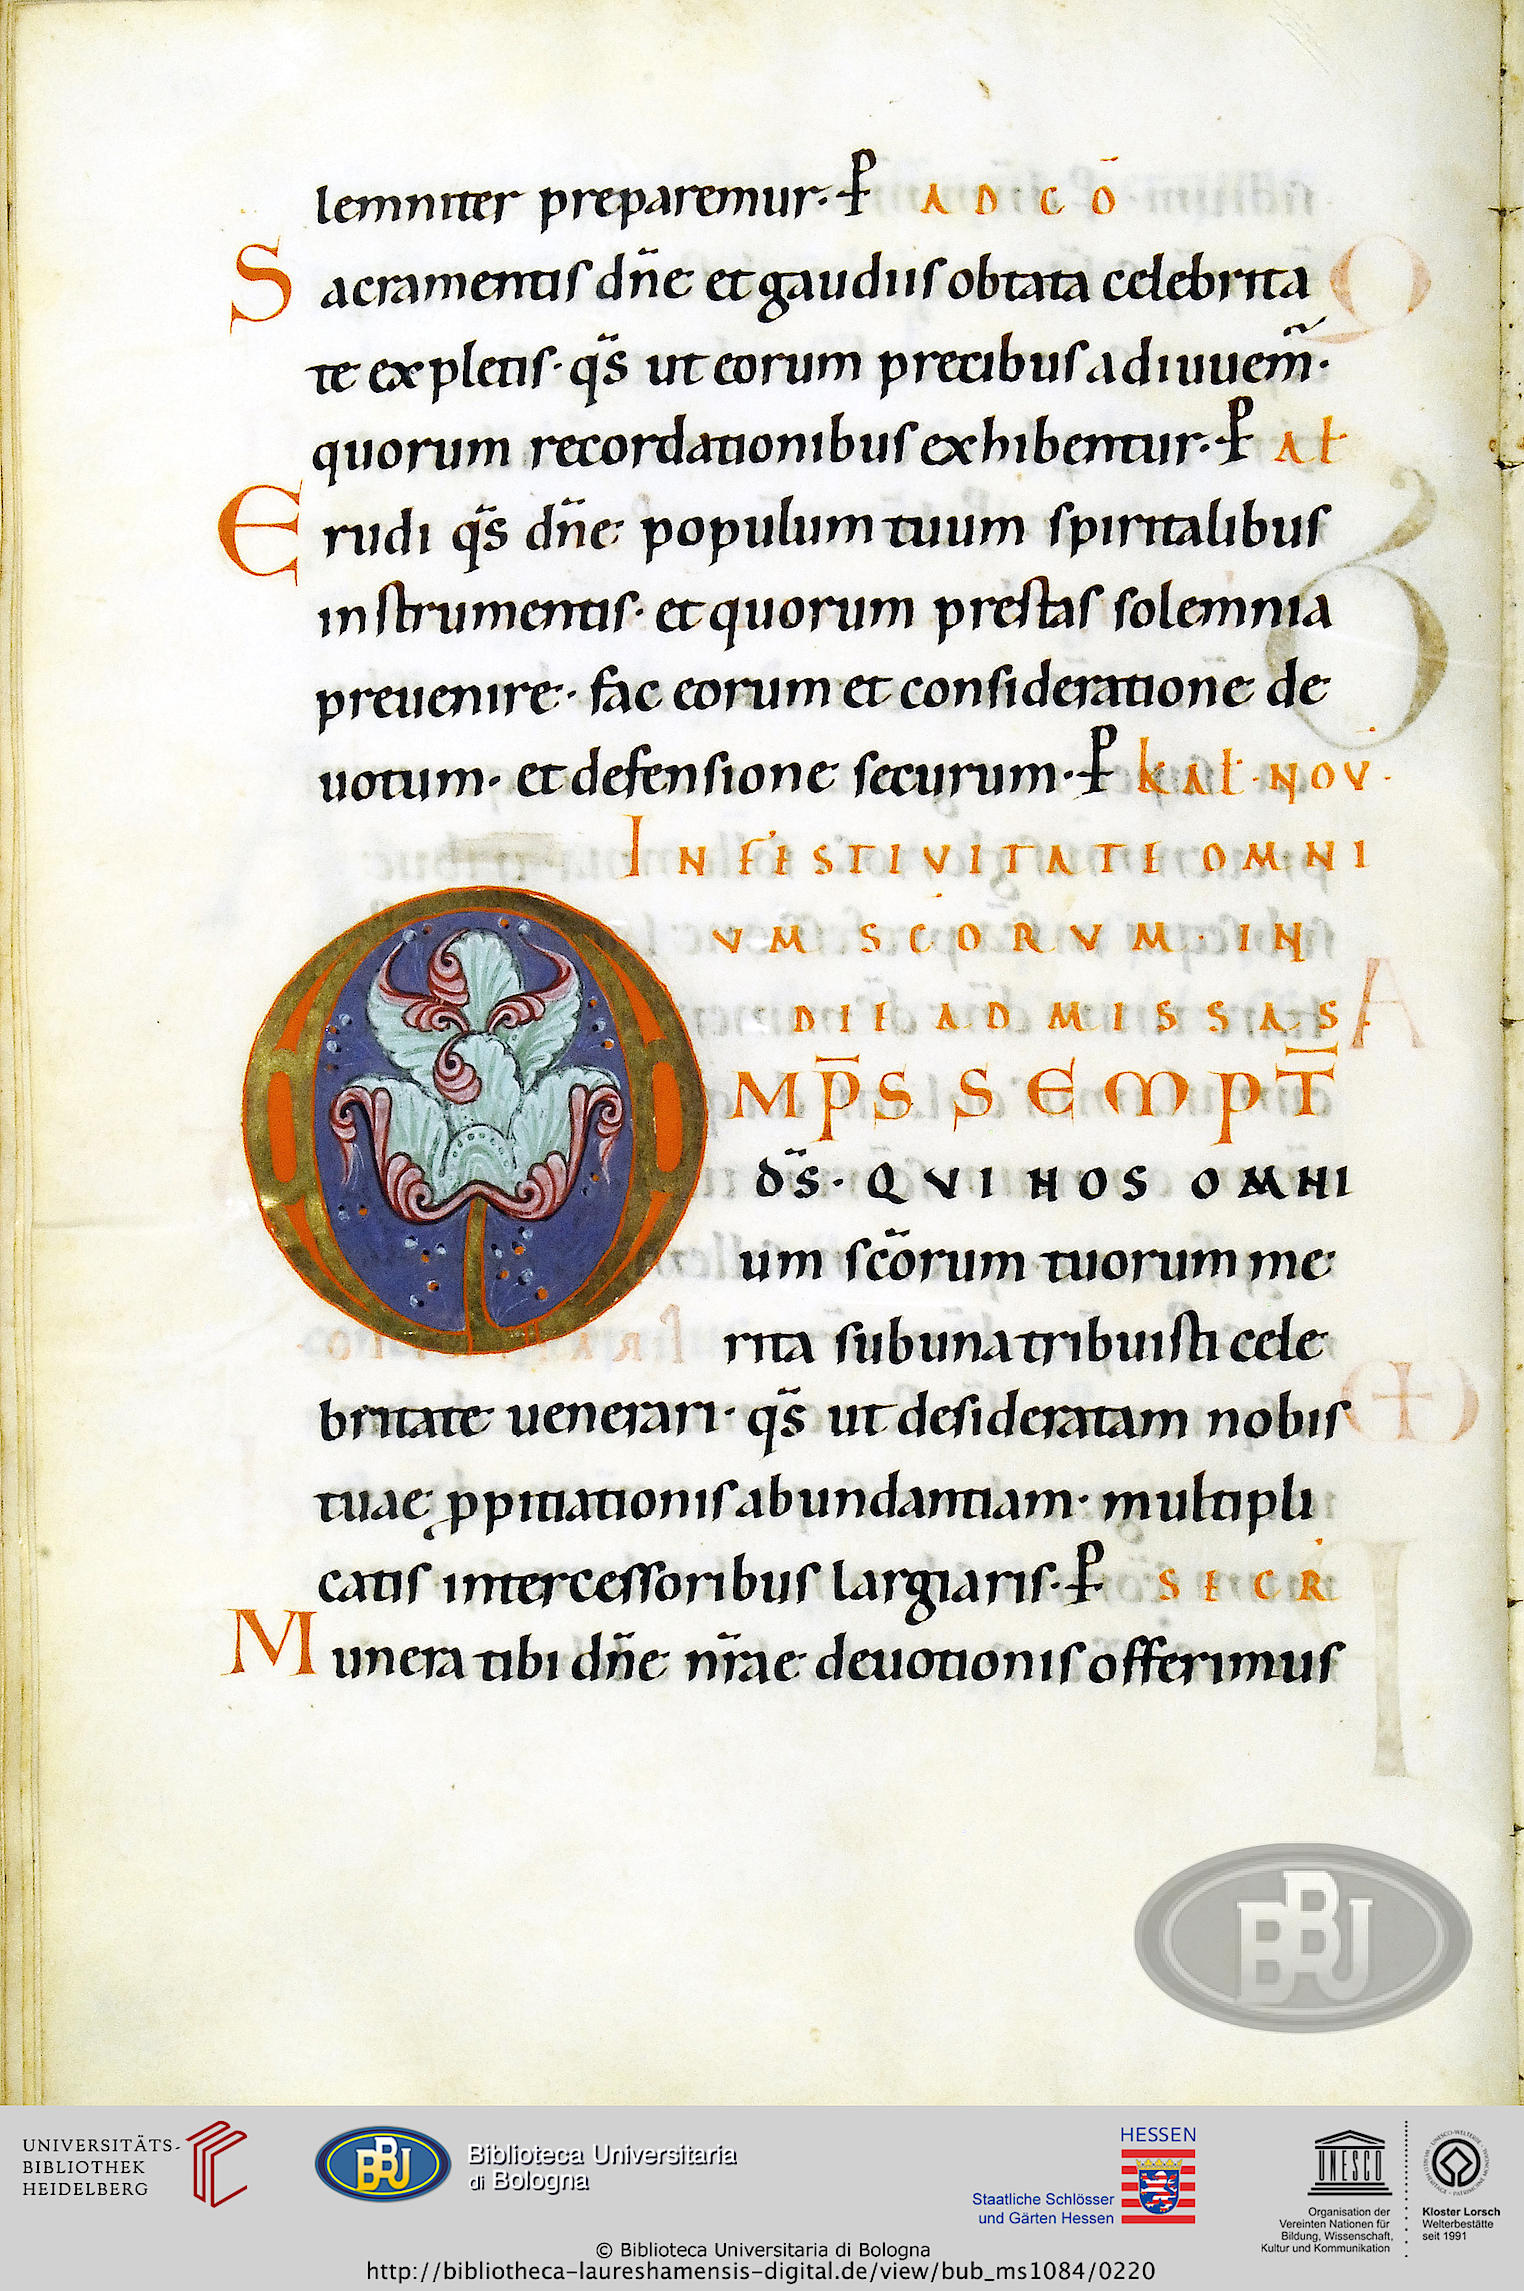 lemniter preparemur· ꝑ AD CŌ
Sacramentis dn̄e et gaudiis obtata celebrita
te expletis· qs̄ ut eorum precibus adiuuem̄·
quorum recordationibus exhibentur· ꝑ Ał
Erudi qs̄ dn̄e populum tuum spiritalibus
instrumentis· et quorum prestas solemnia
preuenire· fac eorum et consideratione de
uotum· et defensione securum· ꝑ KAł· NOV·
IN FESTIVITATE OMNI
VM SCORVM· IN
DIE AD MISSAS
OMP̄S SEMPT̄
ds̄· QVI NOS OMNI
um sc̄orum tuorum me
rita sub una tribuisti cele
britate uenerari· qs̄ ut desideratam nobis
tuae ꝓpitiationis abundantiam· multipli
catis intercessoribus largiaris· ꝑ SECR
Munera tibi dn̄e nr̄ae deuotionis offerimus
BBU
UNIVERSITÄTS-
BIBLIOTHEK
HEIDELBERG
BBU
Biblioteca Universitaria
di Bologna
HESSEN
Staatliche Schlösser
und Gärten Hessen
UNESCO
Organisation der
Vereinten Nationen für
Bildung, Wissenschaft,
Kultur und Kommunikation
Kloster Lorsch
Welterbestätte
seit 1991
© Biblioteca Universitaria di Bologna
http://bibliotheca-laureshamensis-digital.de/view/bub_ms1084/0220